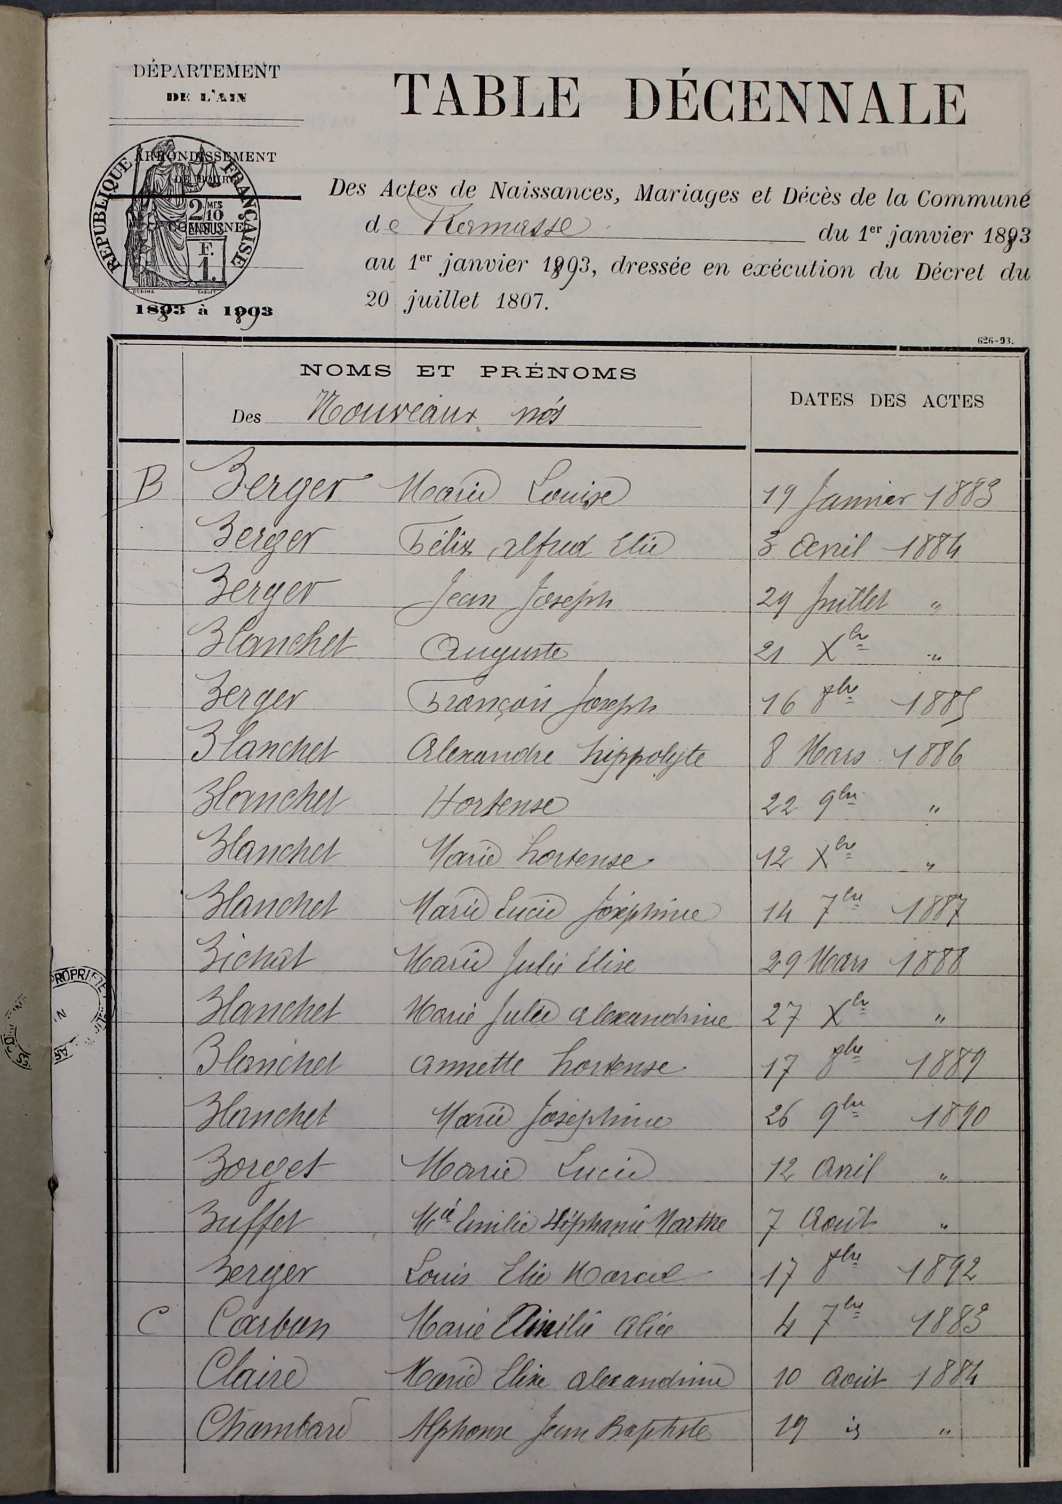 DÉPARTEMENT
DE L'AIN
ARRONDISSEMENT
RÉPUBLIQUE FRANÇAISE
2/10 MES
EN SUS
F.
1.
1893 à 1893
TABLE DÉCENNALE
Des Actes de Naissances, Mariages et Décès de la Commune
de du 1er janvier 1893
au 1er janvier 1893, dressée en exécution du Décret du
20 juillet 1807.
626-93.
NOMS ET PRÉNOMS DATES DES ACTES
Des Nouveaux nés
B Berger Marie Louise 19 Janvier 1883
Berger Félix alfred Elie 3 avril 1884
Berger Jean Joseph 29 Juillet "
Blanchet Auguste 21 Xbre "
Berger François Joseph 16 8bre 1885
Blanchet Alexandre hippolyte 8 Mars 1886
Blanchet Hortense 22 9bre "
Blanchet Marie hortense 12 Xbre "
Blanchet Marie Lucie Joséphine 14 7bre 1887
Bichat Marie Julie Elise 29 Mars 1888
Blanchet Marie Julie alexandrine 27 Xbre "
Blanchet annette hortense 17 8bre 1889
Blanchet Marie Joséphine 26 9bre 1890
Borget Marie Lucie 12 avril "
Buffet Mie Emilie Stéphanie Marthe 7 Août "
Berger Louis Elie Marcel 17 8bre 1892
C Carban Marie Emilie alice 4 7bre 1883
Claire Marie Elise alexandrine 10 août 1884
Chambard Alphonse Jean Baptiste 19 "
PROPRIÉTÉ